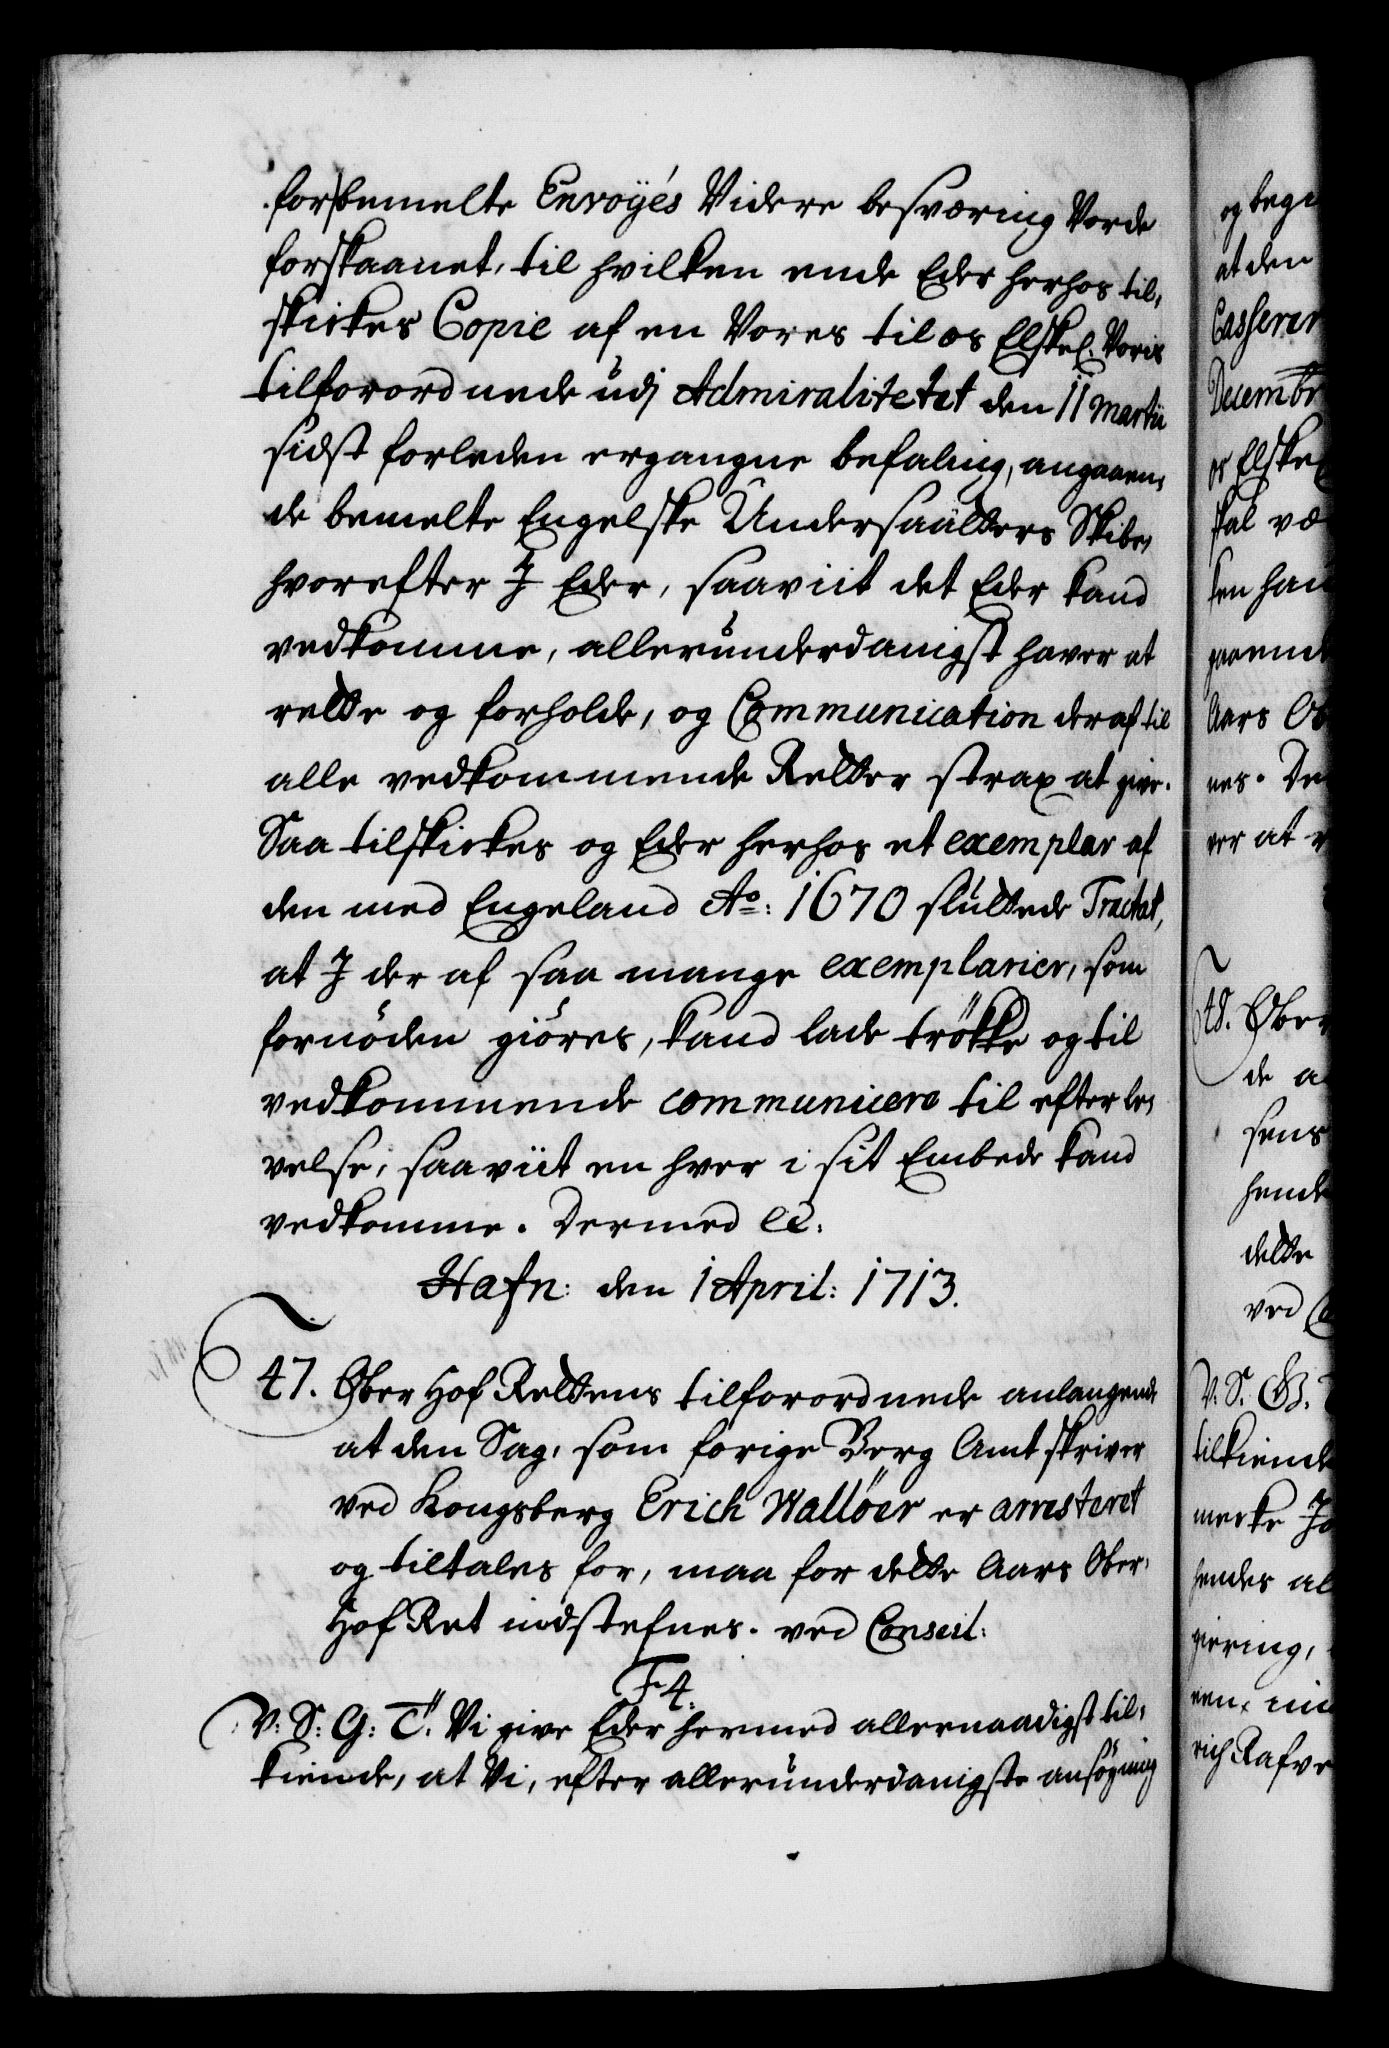 forbemelte Envoyés Videre besværing Vorde
forskaanet, til hvilken ende Eder herhos til,
skickes Copie af en Vores til os Elskel. Voris
tilforordnede udj Admiralitetet den 11 Martii
sidst forleden ergangne befaling, angaaen,
de bemelte Engelske Undersaatters Skibe,
hvorefter J Eder, saaviit det Eder kand
vedkomme, allerunderdanigst haver at
rette og forholde, og Communication deraf til
alle vedkommende Retter strax at give.
Saa tilskickes og Eder herhos et exemplar af
den med Engeland Ao: 1670 sluttede Tractat,
at J der af saa mange exemplarier, som
fornöden giöres, kand lade trökke og til
vedkommende communicere til efterle,
velse, saaviit en hver i sit Embede kand
vedkomme. Dermed ec:
Hafn: den 1 April: 1713.
47. Ober Hof Rettens tilforordnede anlangende
at den Sag, som forige Berg Amtskriver
ved Kongsberg Erich Wallöer er arresteret
og tiltales for, maa for dette Aars Ober,
Hof Ret indstefnes. ved Conseil:
F4.
V: S: G: T. Vi give Eder hermed allernaadigst til,
kiende, at Vi, efter allerunderdanigste ansögning
og begi
at den
Casserer
Decembr
os Elskel
skal væ
ken han
gaaende
Aars Ob
nes. De
ver at
48. Ober
de a
sens
hende
dette
ved C
V: S: G:
tilkiende
mercke Jo
hendes al
giering,
een,
rich Rafve